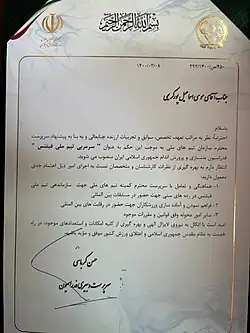 بسم الله الرحمن الرحیم
۲۹۲/۱۴۰۰/ص/۴۵۰
۱۴۰۰/۰۳/۰۸
جناب آقای موسی اسماعیل پورکریمی
باسلام
احتراما، نظر به مراتب تعهد، تخصص، سوابق و تجربیات ارزنده جنابعالی و به بنا به پیشنهاد سرپرست
محترم سازمان تیم های ملی به موجب این حکم به عنوان " سرمربی تیم ملی فیتنس "
فدراسیون بدنسازی و پرورش اندام جمهوری اسلامی ایران منصوب می شوید.
انتظار دارم به بهره گیری از نظرات کارشناسان و متخصصان نسبت به اجرای امور ذیل اهتمام جدی
معمول دارید:
۱- هماهنگی و تعامل با سرپرست محترم کمیته تیم های ملی جهت سازماندهی تیم ملی
فیتنس در رده های سنی جهت حضور در مسابقات بین المللی
۲- فراهم نمودن و آماده سازی ورزشکاران جهت حضور در رقابت های بین المللی
۳- سایر امور محوله وفق قوانین و مقررات موجود
امید است با اتکال به نیروی لایزال الهی و بهره گیری از کلیه امکانات و استعدادهای موجود، در راه
خدمت به نظام مقدس جمهوری اسلامی و اعتلای ورزش کشور موفق و مؤید باشید.
سرپرست دبیری فدراسیون